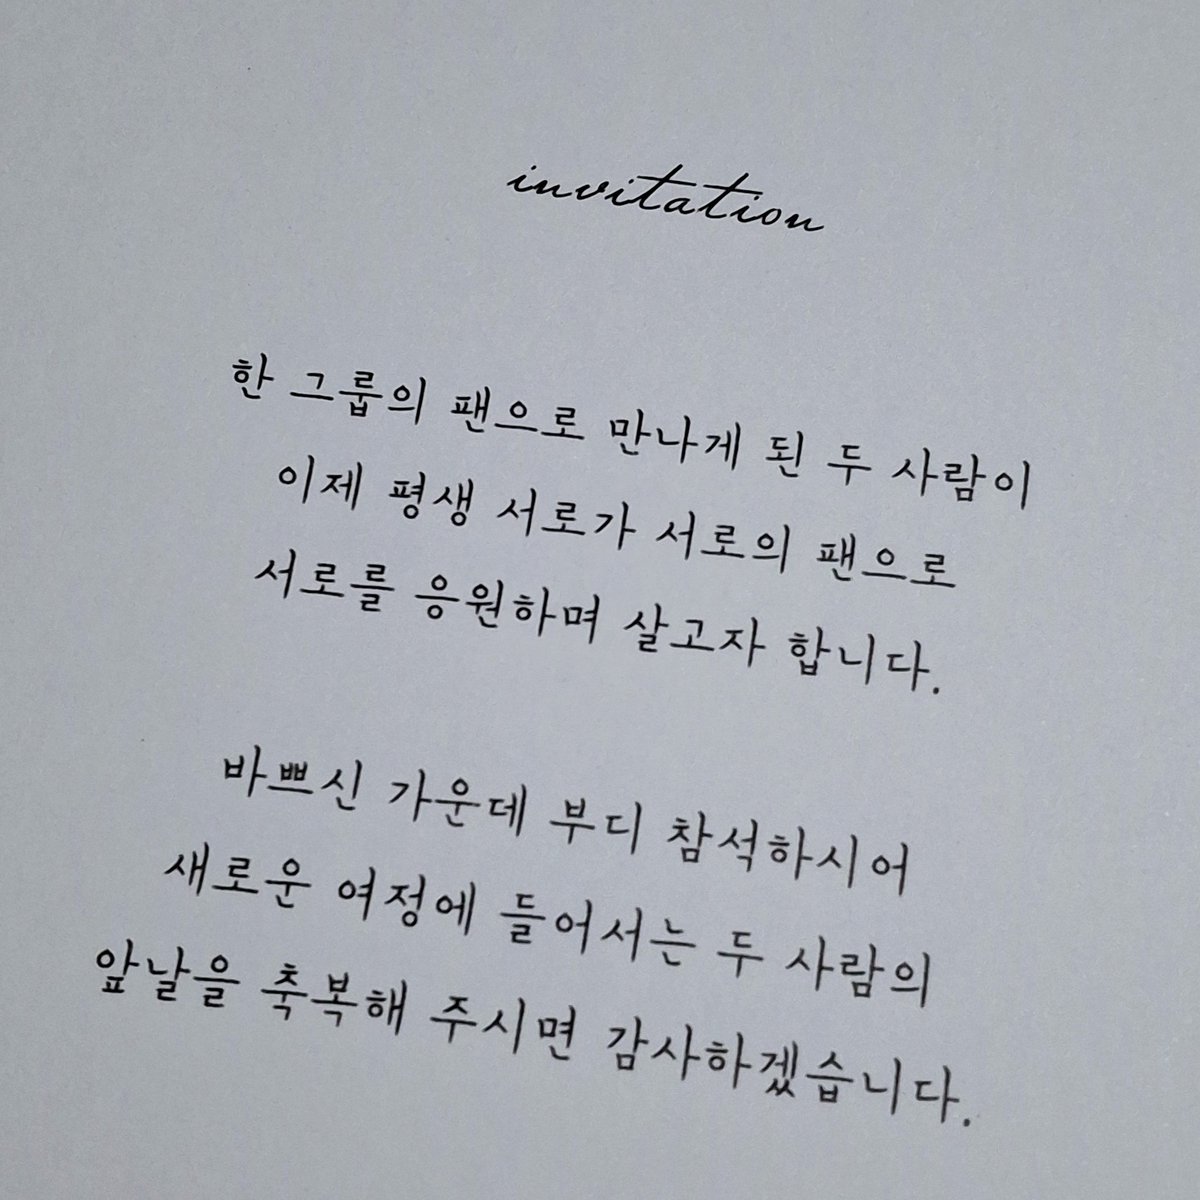 invitation
한 그룹의 팬으로 만나게 된 두 사람이
이제 평생 서로가 서로의 팬으로
서로를 응원하며 살고자 합니다.
바쁘신 가운데 부디 참석하시어
새로운 여정에 들어서는 두 사람의
앞날을 축복해 주시면 감사하겠습니다.